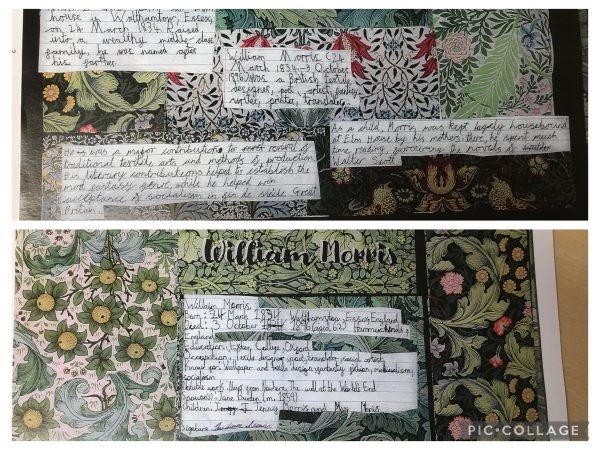 house in Walthamstow, Essex,
on 24 March 1834. Raised
into a wealthy middle-class
family, he was named after
his farther.
William Morris (24
March 1834-3 October
1896) was a British textile
designer, poet, artist,
writer, printer, translator
He was a major contributions to revival of
traditional textile arts and methods of production
His literary contributions helped to establish the
fantasy genre, while he helped win
acceptance of socialism in fin de siècle Great
Britain.
As a child, Morris was kept largely housebound
at Elm House by his mother; there, he spent much
time reading, favouring the novels of
Walter Scott
William Morris
William Morris
Born: 24 March 1834, Walthamstow, Essex, England
Died: 3 October 1896 (aged 62) Hammersmith,
England
Education: Exeter College Oxford
Occupation: textile designer, poet, translator, social artist,
known for: Wallpaper and textile design, fantasy fiction, medievalism,
socialism
notable work: News from Nowhere, The well at the World's End
Spouse(s): Jane Burden (m. 1859)
Children: Jenny Morris and May Morris
Signature
PIC•COLLAGE